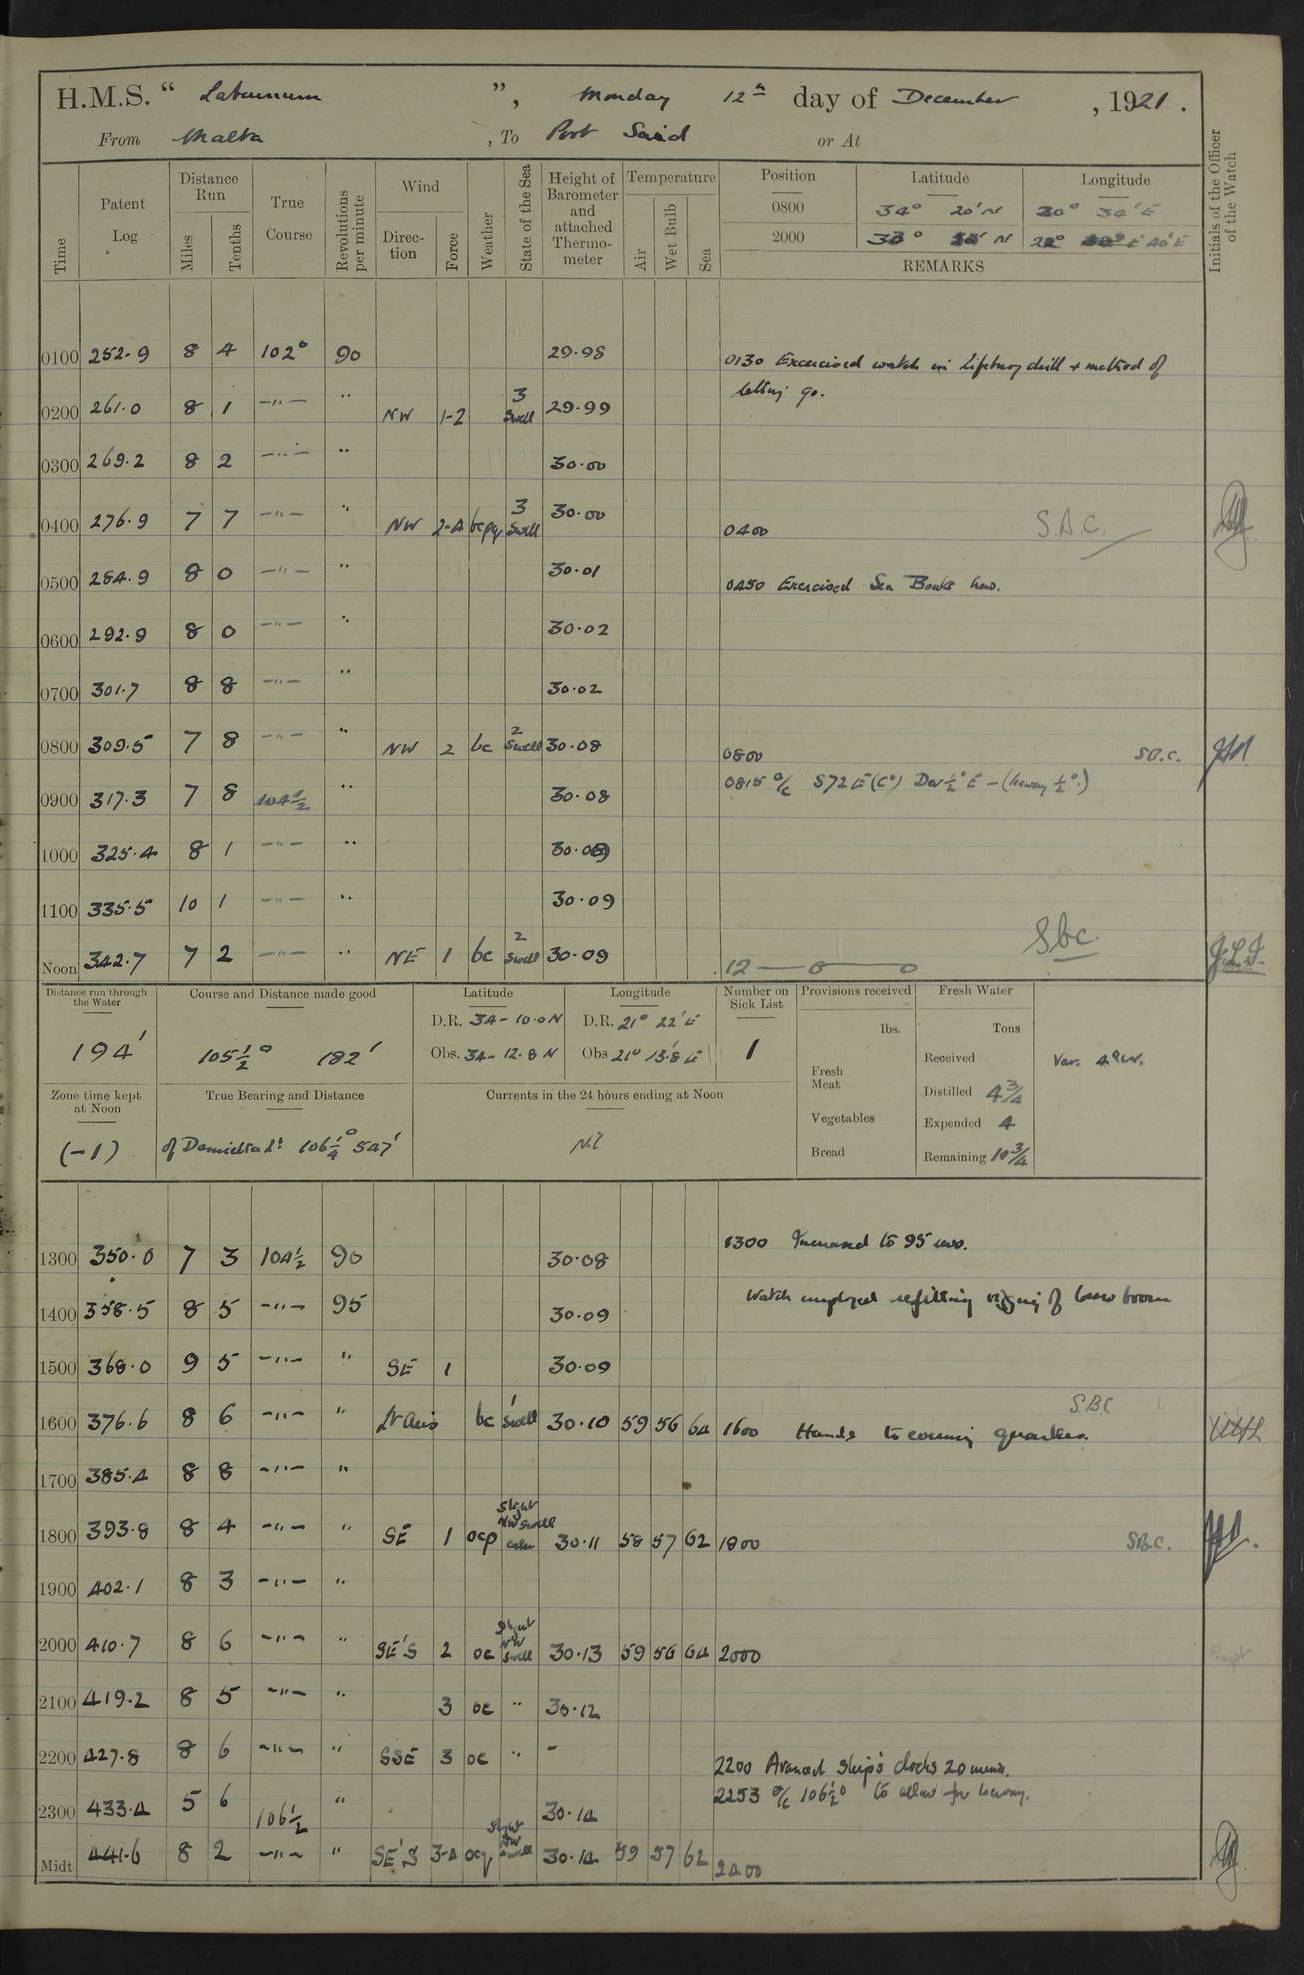 H.M.S. “ Laburnum ”, Monday 12th day of December , 1921.
From Malta , To Port Said or At
Time
Patent Log
Distance Run
Miles
Tenths
True Course
Revolutions per minute
Wind
Direction
Force
Weather
State of the Sea
Height of Barometer and attached Thermometer
Temperature
Air
Wet Bulb
Sea
Position Latitude Longitude
0800 34° 20' N 20° 34' E
2000
REMARKS
Initials of the Officer of the Watch
0100 252.9 8 4 102° 90 29.98 0130 Excercised watch in lifebuoy drill + method of
letting go.
0200 261.0 8 1 –"– " NW 1-2 3 Swell 29.99
0300 269.2 8 2 –"– " 30.00
0400 276.9 7 7 –"– " NW 2-4 bcpq 3 Swell 30.00 0400 S.B.C.
0500 284.9 8 0 –"– " 30.01 0450 Exercised Sea Boats crew.
0600 292.9 8 0 –"– " 30.02
0700 301.7 8 8 –"– " 30.02
0800 309.5 7 8 –"– " NW 2 bc 2 Swell 30.08 0800 S.B.C.
0900 317.3 7 8 104½ " 30.08 0815 a/c S72E (C°) Dev ½° E – (leeway ½°.)
1000 325.4 8 1 –"– " 30.09
1100 335.5 10 1 –"– " 30.09
Noon 342.7 7 2 –"– " NE 1 bc 2 Swell 30.09 12 Sbc.
Distance run through the Water
194'
Course and Distance made good
105½° 182'
Latitude
D.R. 34-10.0 N
Obs. 34-12.8 N
Longitude
D.R. 21° 22' E
Obs 21° 13.8' E
Number on Sick List
1
Provisions received
lbs.
Fresh Meat
Vegetables
Bread
Fresh Water
Tons
Received
Distilled 4¾
Expended 4
Remaining 10¾
Var. 4°W.
Zone time kept at Noon
(-1)
True Bearing and Distance
of Damietta Lt 106¼° 547'
Currents in the 24 hours ending at Noon
Nil
1300 350.0 7 3 104½ 90 30.08 1300 Increased to 95 revs.
1400 358.5 8 5 –"– 95 30.09 Watch employed refitting rigging of lower boom
1500 368.0 9 5 –"– " SE 1 30.09
1600 376.6 8 6 –"– " Lt airs bc 1 Swell 30.10 59 56 64 1600 Hands to evening quarters. S.B.C
1700 385.4 8 8 –"– "
1800 393.8 8 4 –"– " SE 1 ocp Slight NW swell calm 30.11 58 57 62 1800 S.B.C.
1900 402.1 8 3 –"– "
2000 410.7 8 6 –"– " SE'S 2 oc Slight NW Swell 30.13 59 56 64 2000
2100 419.2 8 5 –"– " 3 oc " 30.12
2200 427.8 8 6 –"– " SSE 3 oc " – 2200 Avanced ship's clocks 20 mins.
2253 a/c 106½° to allow for leeway.
2300 433.4 5 6 106½ " 30.14
Midt 441.6 8 2 –"– " SE'S 3-4 ocq Slight NW swell 30.14 59 57 62 2400